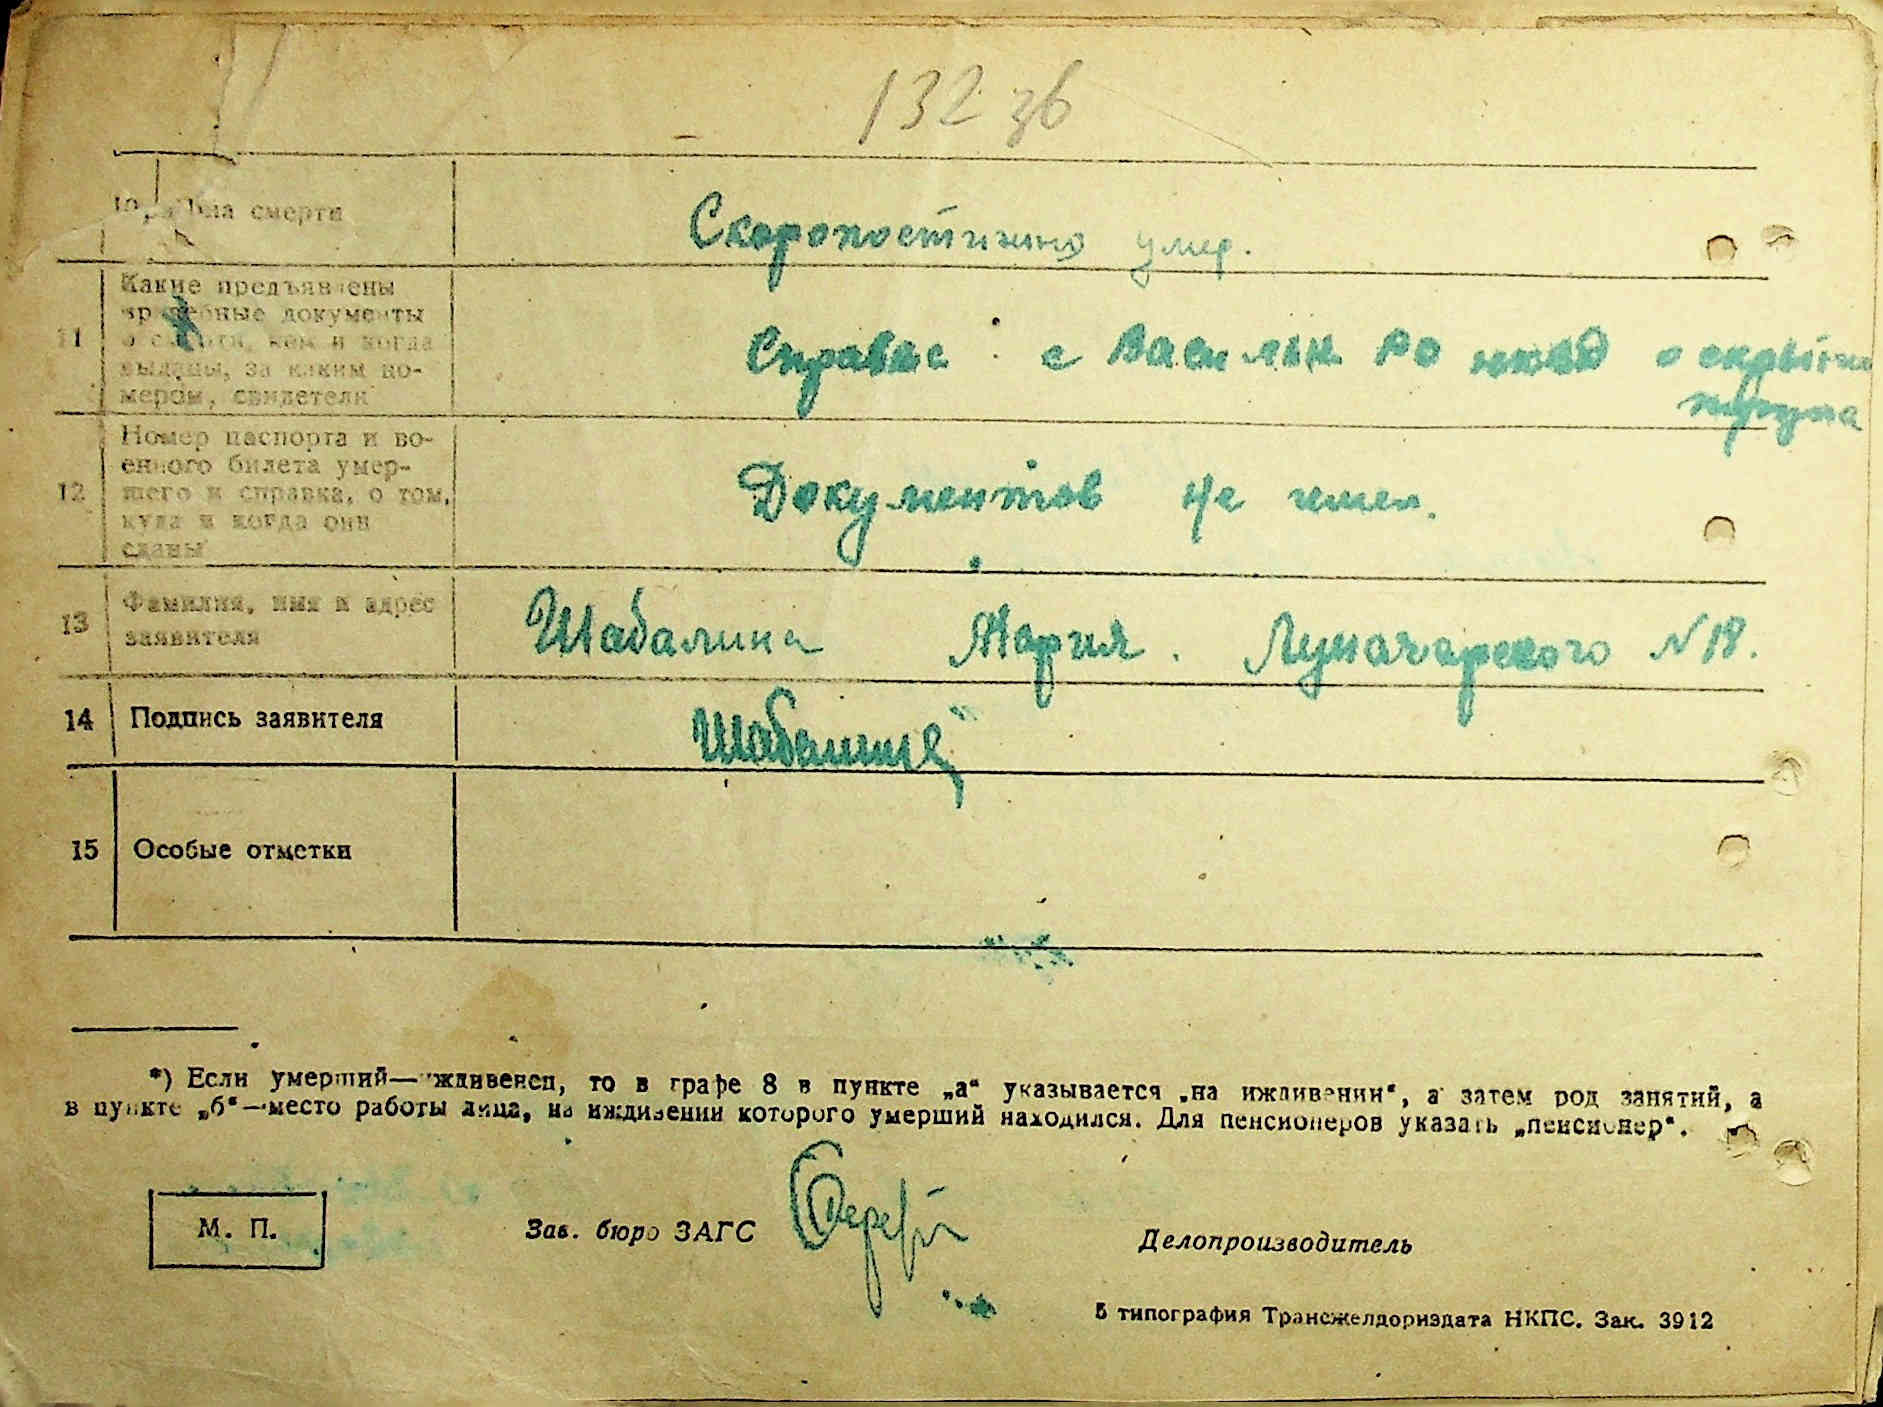 132 зв
10, чина смерти
Скоропостижно умер.
11
Какие предъявлены
врачебные документы
о смерти, кем и когда
выданы, за каким но-
мером, свидетели
Справка с Васильн РО НКВД о скрытии
трупа
12
Номер паспорта и во-
енного билета умер-
шего и справка, о том,
куда и когда они
сданы
Документов не имел.
13
Фамилия, имя и адрес
заявителя
Шабалина Мария. Луначарского N 18.
14 Подпись заявителя
Шабалина
15 Особые отметки
*) Если умерший—иждивенец, то в графе 8 в пункте „а“ указывается „на иждивении“, а затем род занятий, а
в пункте „б“—место работы лица, на иждивении которого умерший находился. Для пенсионеров указать „пенсионер“.
М. П.
Зав. бюро ЗАГС
Делопроизводитель
5 типография Трансжелдориздата НКПС. Зак. 3912